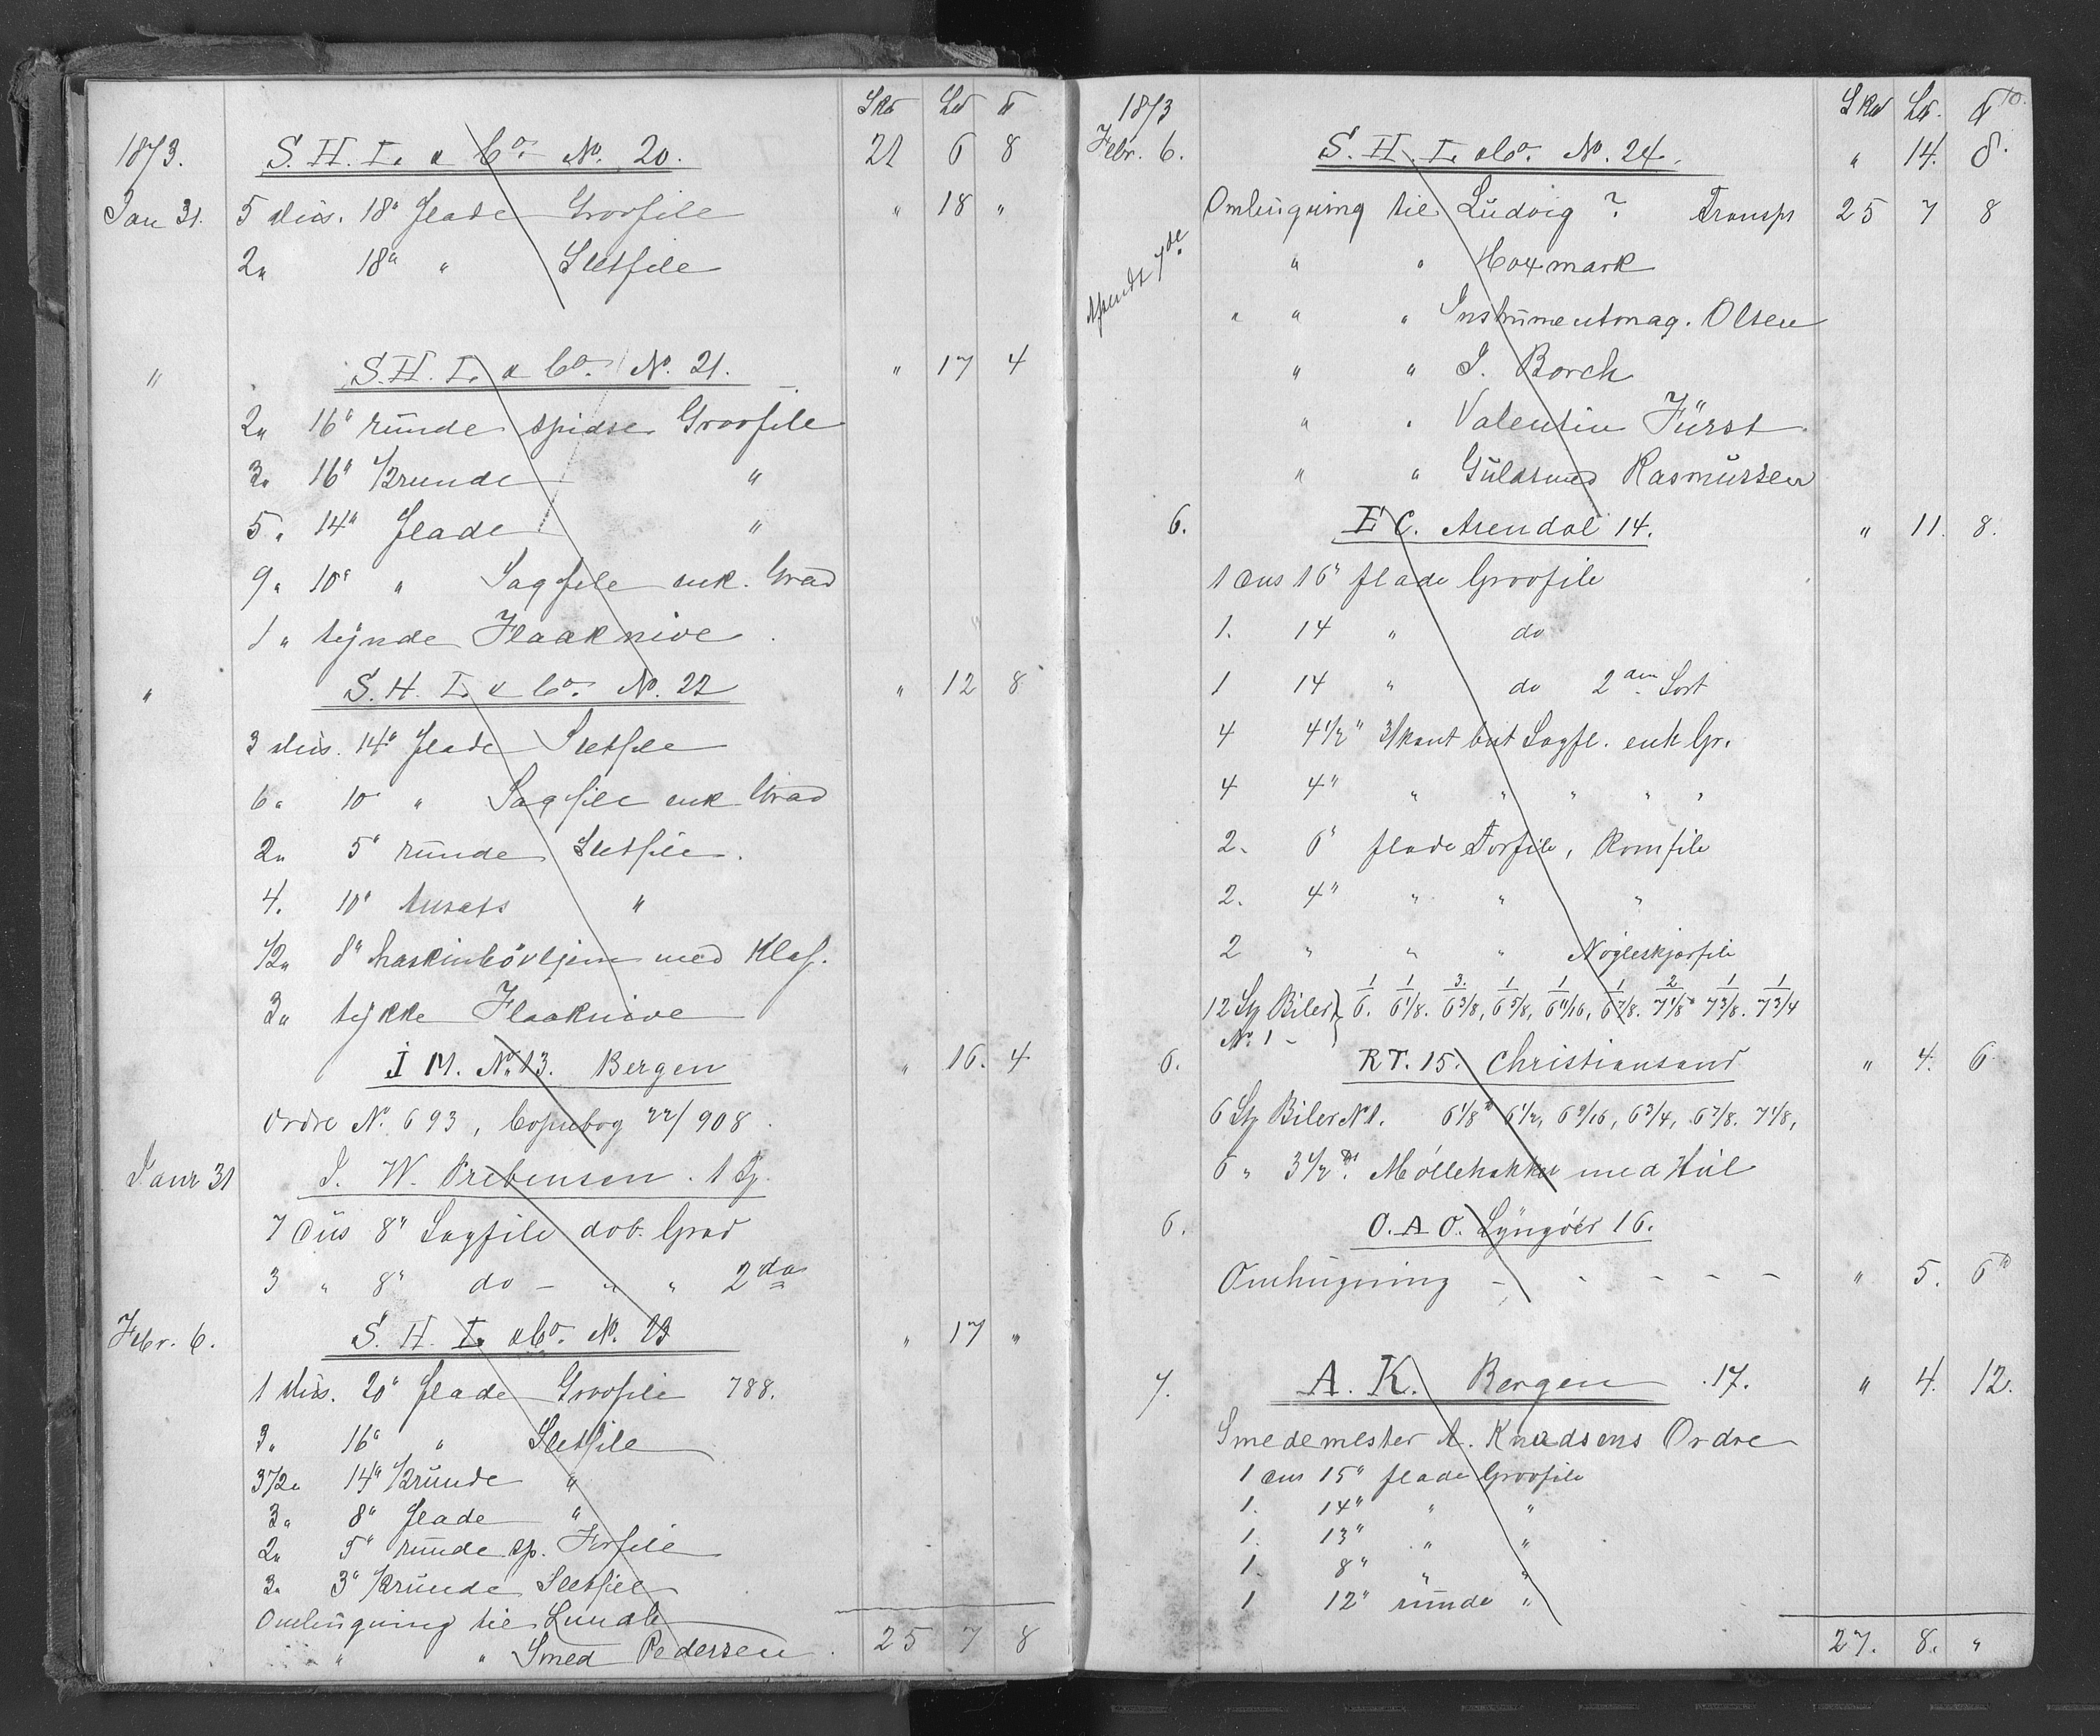 Skd Ld ℔
1873. S. H. L. & Co. No. 20. 22 6 8
Jan 31. 5 dus. 18" flade Groofile " 18 "
2 " 18" " Sletfile
" S. H. L. & Co. No. 21. " 17 4
2 " 16" runde spidse Groofile
3 " 16" 1/2runde "
5 " 14" flade "
9 " 10" " Sagfile enk. Grad
1 " tynde Flaaknive
" S. H. L. & Co. No. 22 " 12 8
3 dus. 14" flade Sletfile
6 " 10 " Sagfile enk Grad
2 " 5" runde Sletfile.
4. 10" "
1/2 " 8" med Klaf.
3 " tykke Flaaknive
I M. No. 13. Bergen " 16. 4
Ordre No. 693, Copiebog 22/908.
Janr 31 J. W. Prebensen. 1 Sp.
7 dus 8" Sagfile dob. Grad
3 " 8" do - " " 2da
Febr. 6. S. H. L. & Co. No. 23 " 17 "
1 dus. 20" flade Groofile 788.
3 " 16" " Sletfile
3 1/2 " 14" 1/2runde "
3 " 8" flade "
2 " 5" runde sp. Forfile
3 " 3" 1/2runde Sletfile
Omhugning til Lunde
" " Smed Pedersen. 25 7 8
1873 Skd Ld. ℔
10.
Febr. 6. S. H. L. & Co. No. 24. " 14. 8.
Omhugning til Ludvig ? Transp 25 7 8
Afsendt 7de
" " Hoxmark
" " " Instrumentmag. Olsen
" " J. Borch
" " Valentin Fürst
" " Guldsmed Rasmussen
6. E C. Arendal 14. " 11. 8.
1 dus 16" flade Groofile
1. 14 " do
1 14 " do 2den Sort
4 4 1/2" 3/kant but Sagfl. enk Gr.
4 4" " " " " "
2. 6" flade Forfile, Romfile
2. 4" " " "
2 " " " Nøgleskjærfile
12 Stk Biler } 1/6. 1/6 1/8. 3/6 3/8, 1/6 5/8, 1/6 11/16, 1/6 7/8. 2/7 1/8" 1/7 3/8. 1/7 3/4
No 1 -
6. RT. 15. Christiansand " 4. 6
6 Stk Biler No 1. 6 1/8" 6 1/2, 6 9/16, 6 3/4, 6 7/8. 7 1/8,
6 " 3 1/2 ℔. Møllehakker med Hul
6. O. A O. Lyngöer 16.
Omhugning - - - - - " 5. 6"
7. A. K. Bergen .17. " 4. 12.
Smedemester A. Knudsens Ordre
1 dus 15" flade Groofile
1. 14" " "
1. 13" " "
1. 8" " "
1 12" runde "
27. 8. "